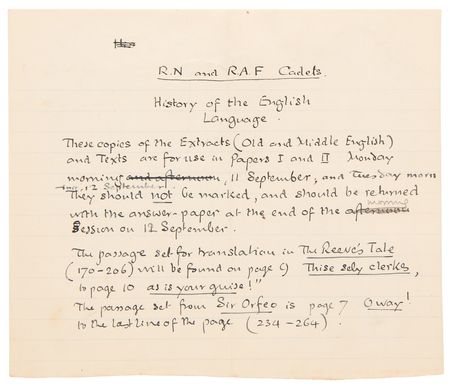 R.N and R.A.F Cadets.
History of the English
Language.
These copies of the Extracts (Old and Middle English)
and Texts are for use in Papers I and II Monday
morning and afternoon, 11 September, and Tuesday morn
ing, 12 September
They should not be marked, and should be returned
morning
with the answer-paper at the end of the afternoon
Session on 12 September.
The passage set for translation in The Reeve's Tale
(170-206) will be found on page 9) Thise sely clerkes,
to page 10 as is your guise!"
The passage set from Sir Orfeo is page 7 O way!
to the last line of the page (234-264).